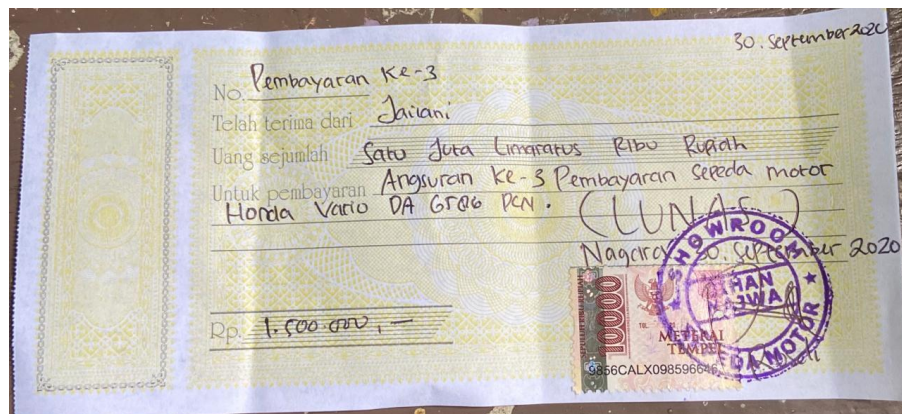 30. September 2020
No. Pembayaran Ke-3
Telah terima dari Jailani
Uang sejumlah Satu Juta Limaratus Ribu Rupiah
Untuk pembayaran Angsuran Ke-3 Pembayaran Sepeda motor
Honda Vario DA PCN. (LUNAS)
30. September 2020
SHOWROOM
HAN
DA MOTOR
10000
TGL.
METERAI
TEMPEL
9856CALX09859664
Rp. 1.500 000,-